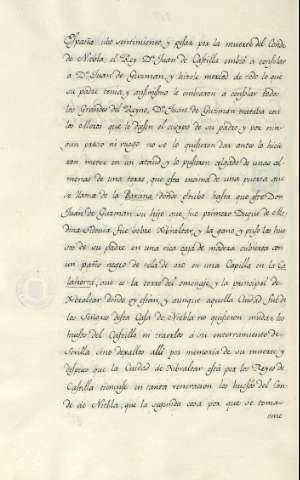 España hizo sentimiento, y pesar por la muerte del Conde
de Niebla, el Rey Dn. Juan de Castilla embió a consolar
a Dn. Juan de Guzman, y hizole merced de todo lo que
su padre tenia, y asimismo le embiaron a consolar todos
los Grandes del Reyno, Dn. Juan de Guzman trataba con
los Moros que le diesen el cuerpo de su padre, y por nin-
gun precio ni ruego no se lo quisieron dar antes lo hicie
ron meter en un ataud y lo pusieron colgado de unas al-
menas de una torre, que esta encima de una puerta que
se llama de la Barcina donde estubo hasta que este Don
Juan de Guzman su hijo que fue primero Duque de Me
dina Sidonia fue sobre Xibraltar, y la gano, y puso los hue
sos de su padre en una rica caja de madera cubierta con
un paño negro de tela de oro en una Capilla en la Ca
lahorra, que es la torre del omenaje, y la principal de
Xibraltar donde oy estan, y aunque aquella Ciudad fue de
los Señores desta Casa de Niebla no quisieron mudar los
huesos del Castillo ni traerlos a su enterramiento de
Sevilla sino dexallos alli por memoria de su muerte, y
despues que la Ciudad de Xibraltar está por los Reyes de
Castilla tienese en tanta veneracion los huesos del Con
de de Niebla, que la segunda cosa por que se toma
ome